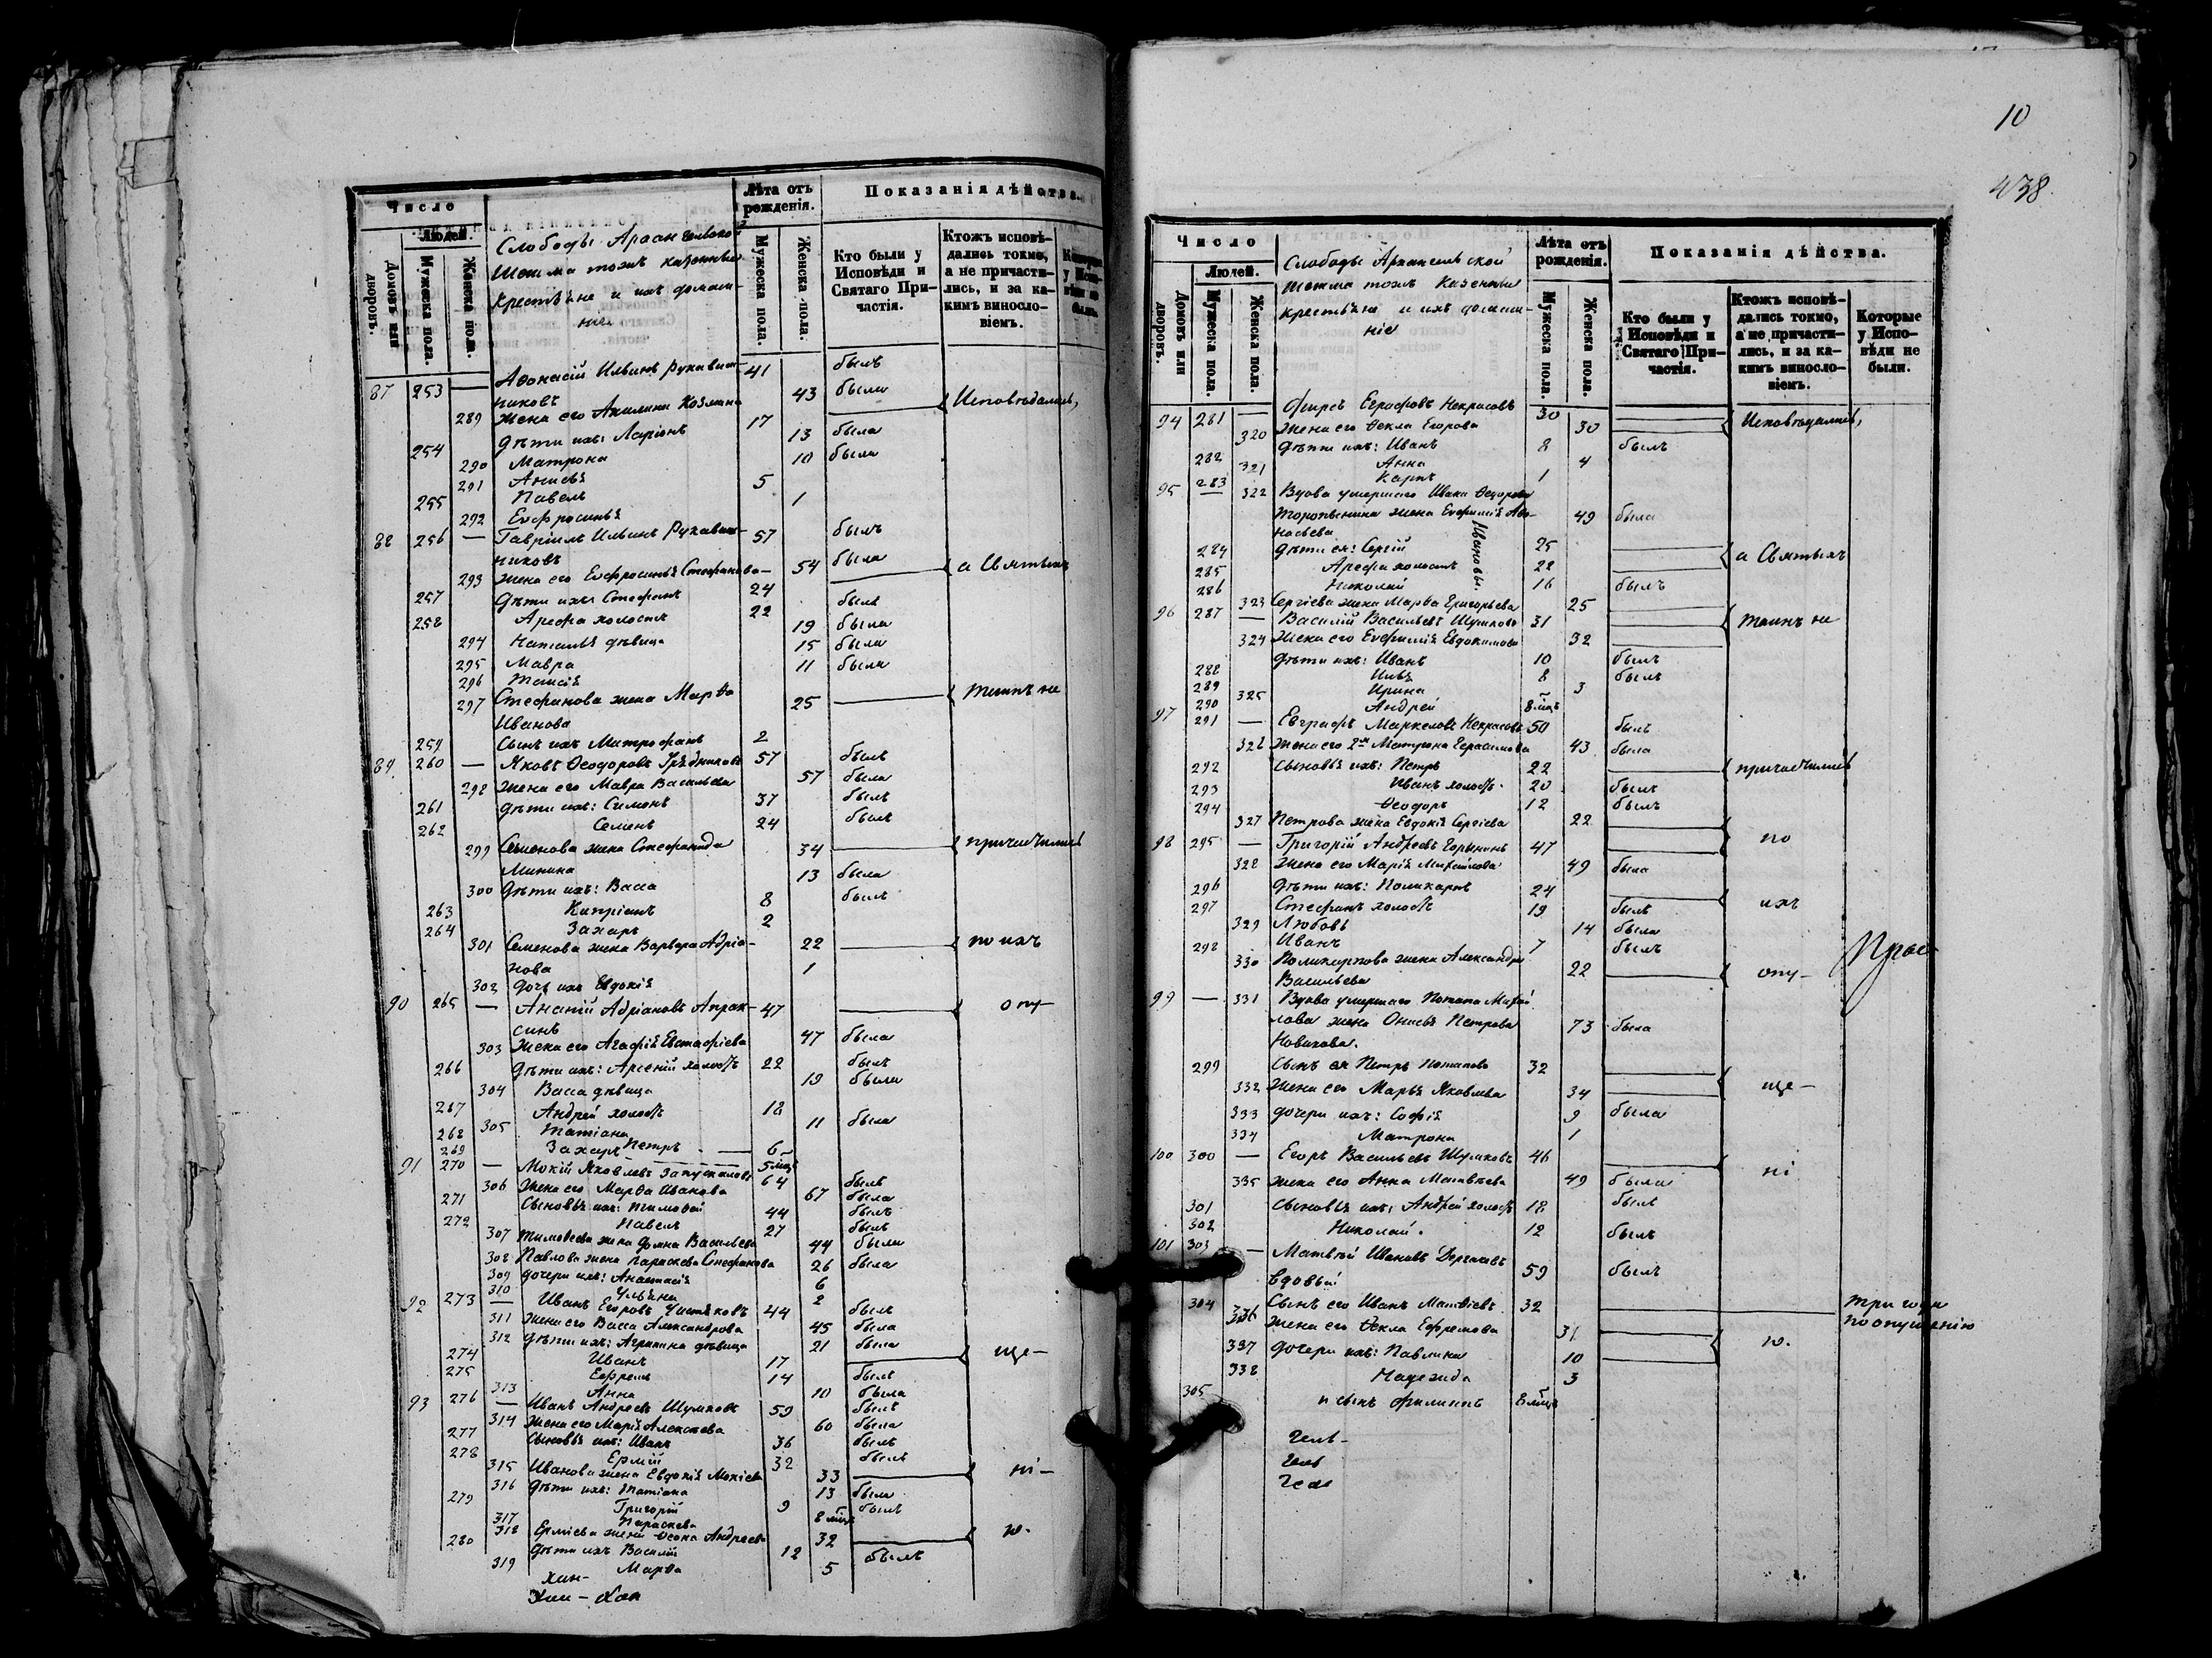 Число
Людей.
Домовъ или дворовъ.
Мужеска пола.
Женска пола.
Слободы Архангельской
Шешма тожъ казенныи
крестьяне и ихъ домаш-
ніи
Лѣта отъ рожденія.
Мужеска пола.
Женска пола.
Показанія дѣйства.
Кто были у Исповѣди и Святаго Причастія.
Ктожъ исповѣдались токмо, а не причастились, и за какимъ винословіемъ.
87 253 — Аѳонасій Ильинъ Рукавиш- 41 былъ
никовъ
289 Жена его Акилина Козмина 43 была
254 Дѣти ихъ: Ларіонъ 17 Исповѣдались,
290 Матрона 13 была
291 Анисья 10 была
255 Павелъ 5
292 Евфросинья 1
88 256 — Гавріилъ Ильинъ Рукавиш- 57 былъ
никовъ
293 Жена его Евфросинья Стефанова 54 была
257 Дѣти ихъ: Стефанъ 24 а Святыхъ
258 Арефа холостъ 22 былъ
294 Наталья дѣвица 19 была
295 Мавра 15 была
296 Таисія 11 была
297 Стефанова жена Марѳа 25 Таинъ не
Иванова
259 Сынъ ихъ Митрофанъ 2
89 260 — Яковъ Ѳеодоровъ 57 былъ
298 Жена его Мавра Васильева 57 была
261 Дѣти ихъ: Симонъ 37 былъ
262 Семенъ 24 былъ
299 Семенова жена Стефанида 34 причастились
Минина
300 Дѣти ихъ: Васса 13 была
263 Кипріанъ 8 былъ
264 Захаръ 2
301 Семенова жена Варвара Адріа- 22 по ихъ
нова
302 Дочь ихъ Евдокія 1
90 265 — Ананій Адріановъ Апрак- 47 опу-
синъ
303 Жена его Агафія Евстафіева 47 была
266 Дѣти ихъ: Арсеній холостъ 22 былъ
304 Васса дѣвица 19 была
267 Андрей холостъ 18
305 Татіана 11 была
268 Петръ 6
269 Захаръ 5 мцъ
91 270 — Мокій Яковлевъ 64 былъ
306 Жена его Марѳа Иванова 67 была
271 Сыновья ихъ: Тимоѳей 44 былъ
272 Павелъ 27 былъ
307 Тимоѳеева жена Домна Васильева 44 была
308 Павлова жена Параскева Стефанова 26 была
309 дочери ихъ: Анастасія 6
310 Ульяна 2
92 273 — Иванъ Егоровъ Чистяковъ 44 былъ
311 Жена его Васса Александрова 45 была
312 Дѣти ихъ: Агрипина дѣвица 21 была
274 Иванъ 17 ще-
275 Ефремъ 14 былъ
313 Анна 10 была
93 276 — Иванъ Андреевъ Шумковъ 59 былъ
314 Жена его Марія Алексѣева 60 была
277 Сыновья ихъ: Иванъ 36 былъ
278 Ермій 32 былъ
315 Иванова жена Евдокія Мокіева 33 ні-
316 Дѣти ихъ: Татіана 13 была
279 Григорій 9 былъ
317 Параскева 8 мцъ
318 Ерміева жена Андреева 32 ю.
280 Дѣти ихъ Василій 12 былъ
319 Марѳа 5
10
438
Число
Людей.
Домовъ или дворовъ.
Мужеска пола.
Женска пола.
Слободы Архангельской
Шешма тожъ казенныи
крестьяне и ихъ домаш-
ніе
Лѣта отъ рожденія.
Мужеска пола.
Женска пола.
Показанія дѣйства.
Кто были у Исповѣди и Святаго Причастія.
Ктожъ исповѣдались токмо, а не причастились, и за какимъ винословіемъ.
Которые у Исповѣди не были.
94 281 — Фирсъ Еграфовъ Некрасовъ 30 Исповѣдались,
320 Жена его Ѳекла Егорова 30
282 Дѣти ихъ: Иванъ 8 былъ
321 Анна 4
283 Карпъ 1
95 — 322 Вдова умершаго Ивана Ѳеодорова
жена Евфимія Аѳо- 49 была
насьева
284 Дѣти ея: Сергій 25 а Святыхъ
285 Арефа холостъ 22
286 Николай 16 былъ
Ивановы.
323 Сергіева жена Марѳа Григорьева 25
96 287 — Василій Васильевъ Шумковъ 31 Таинъ не
324 Жена его Евфимія Евдокимова 32
288 Дѣти ихъ: Иванъ 10 былъ
289 8 былъ
325 Ирина 3
290 Андрей 8 мцъ
97 291 — Евграфъ Маркеловъ Некрасовъ 50 былъ
326 Жена его 2я Матрона Герасимова 43 была
292 Сыновья ихъ: Петръ 22 причастились
293 Иванъ холостъ 20 былъ
294 Ѳеодоръ 12 былъ
327 Петрова жена Евдокія Сергіева 22
98 295 — Григорій Андреевъ 47 по
328 Жена его Марія Михайлова 49 была
296 Дѣти ихъ: Поликарпъ 24 ихъ
297 Стефанъ холостъ 19 былъ
329 Любовь 14 была
298 Иванъ 7 былъ
330 Поликарпова жена Александра 22 опу-
Васильева
99 — 331 Вдова умершаго Потапа Михай
лова жена Онисья Петрова 73 была
Новикова.
299 Сынъ ея Петръ Потаповъ 32
332 Жена его Марья Яковлева 34 ще-
333 дочери ихъ: Софія 9 была
334 Матрона 1
100 300 — Егоръ Васильевъ Шумковъ 46 ні
335 Жена его Анна Матвѣева 49 была
301 Сыновья ихъ: Андрей холостъ 18 былъ
302 Николай. 12 былъ
101 303 — Матвѣй Ивановъ 59 былъ
вдовый
304 Сынъ его Иванъ Матвѣевъ 32 три года
по опущенію
336 Жена его Ѳекла Ефремова 31 ю.
337 дочери ихъ: Павлина 10
338 Надежда 3
305 и сынъ Филиппъ 8 мцъ